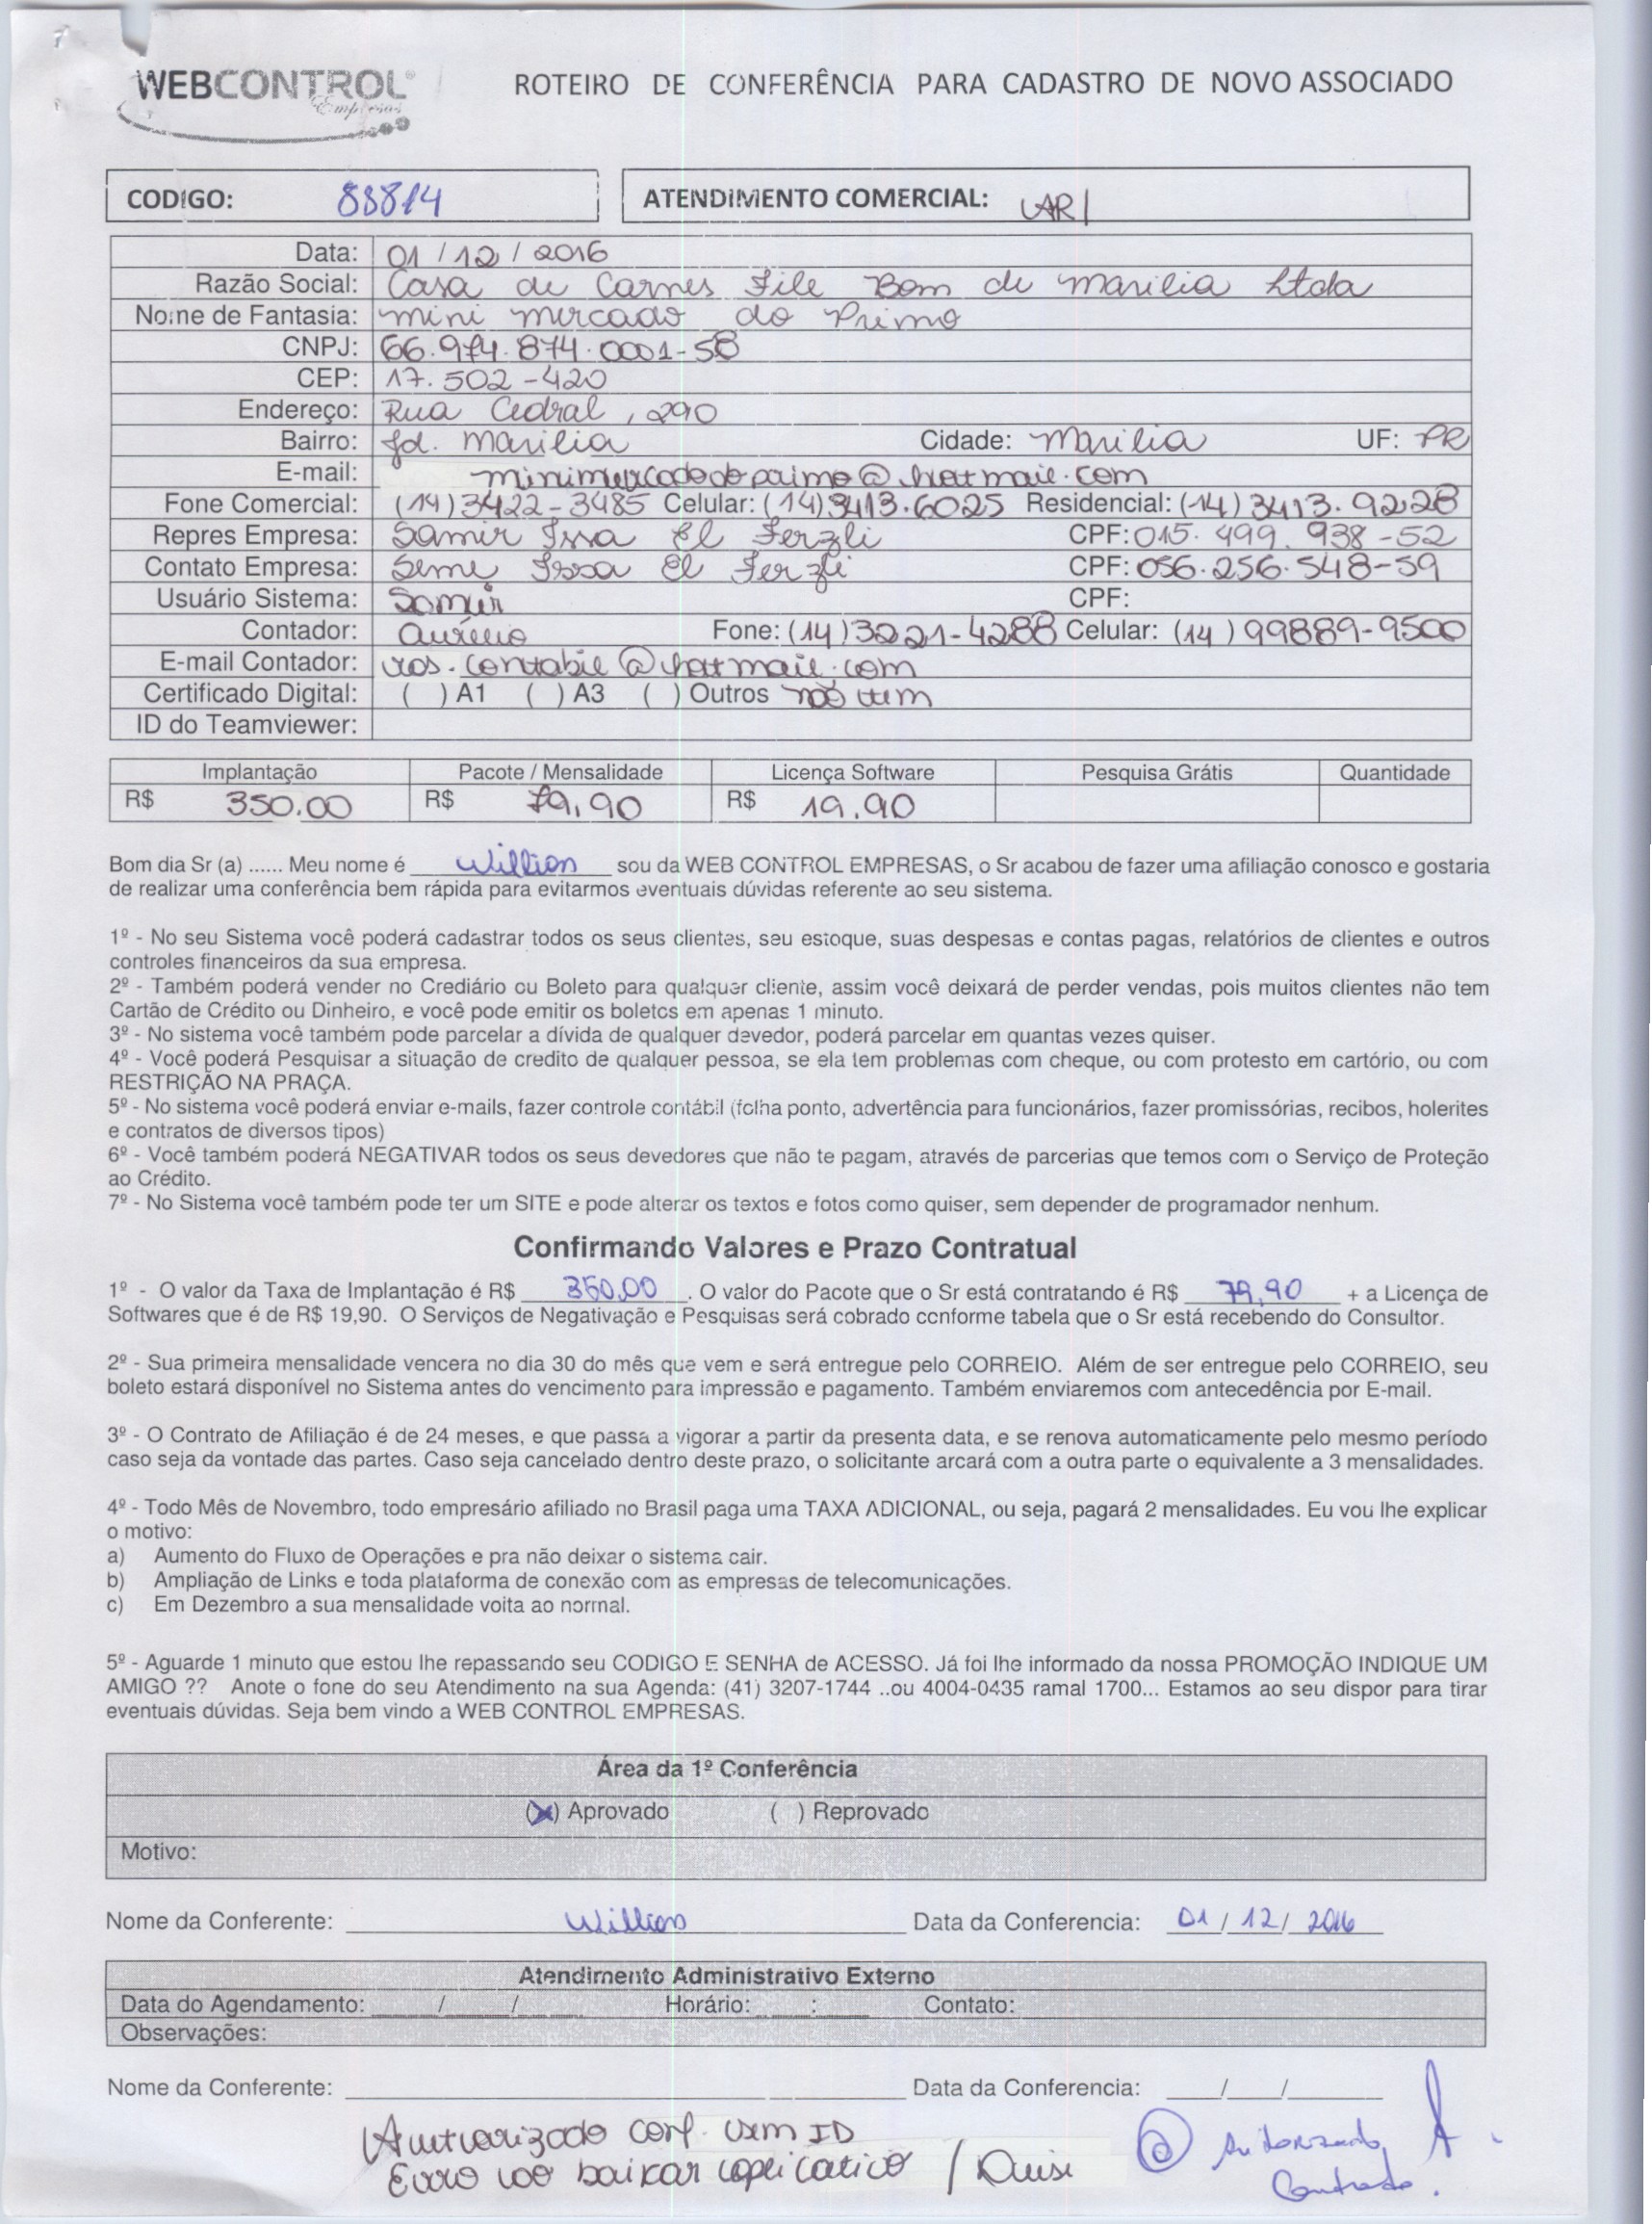 WEBCONTROL
Empresas
ROTEIRO DE CONFERÊNCIA PARA CADASTRO DE NOVO ASSOCIADO
CODIGO: 88814
ATENDIMENTO COMERCIAL: ARI
Data: 01/12/2016
Razão Social: Casa de Carnes File Bom de Marilia Ltda
Nome de Fantasia: mini mercado do Primo
CNPJ: 66.974.874.0001-58
CEP: 17.502-420
Endereço: Rua Cedral, 290
Bairro: Jd. Marilia Cidade: Marilia UF: PR
E-mail: minimercadodoprimo@hotmail.com
Fone Comercial: (14)3422-3485 Celular: (14)3413.6025 Residencial: (14)3413.9228
Repres Empresa: Samir Issa El Ferzli CPF: 015.499.938-52
Contato Empresa: Seme Issa El Ferzli CPF: 056.256.548-59
Usuário Sistema: Samir CPF:
Contador: Aurélio Fone: (14)3221-4288 Celular: (14) 99889-9500
E-mail Contador: ros.contabil@hotmail.com
Certificado Digital: ( ) A1 ( ) A3 ( ) Outros não tem
ID do Teamviewer:
Implantação Pacote / Mensalidade Licença Software Pesquisa Grátis Quantidade
R$ 350.00 R$ 79,90 R$ 19.90
Bom dia Sr (a) ...... Meu nome é Willian sou da WEB CONTROL EMPRESAS, o Sr acabou de fazer uma afiliação conosco e gostaria
de realizar uma conferência bem rápida para evitarmos eventuais dúvidas referente ao seu sistema.
1º - No seu Sistema você poderá cadastrar todos os seus clientes, seu estoque, suas despesas e contas pagas, relatórios de clientes e outros
controles financeiros da sua empresa.
2º - Também poderá vender no Crediário ou Boleto para qualquer cliente, assim você deixará de perder vendas, pois muitos clientes não tem
Cartão de Crédito ou Dinheiro, e você pode emitir os boletos em apenas 1 minuto.
3º - No sistema você também pode parcelar a dívida de qualquer devedor, poderá parcelar em quantas vezes quiser.
4º - Você poderá Pesquisar a situação de credito de qualquer pessoa, se ela tem problemas com cheque, ou com protesto em cartório, ou com
RESTRIÇÃO NA PRAÇA.
5º - No sistema você poderá enviar e-mails, fazer controle contábil (folha ponto, advertência para funcionários, fazer promissórias, recibos, holerites
e contratos de diversos tipos)
6º - Você também poderá NEGATIVAR todos os seus devedores que não te pagam, através de parcerias que temos com o Serviço de Proteção
ao Crédito.
7º - No Sistema você também pode ter um SITE e pode alterar os textos e fotos como quiser, sem depender de programador nenhum.
Confirmando Valores e Prazo Contratual
1º - O valor da Taxa de Implantação é R$ 350,00. O valor do Pacote que o Sr está contratando é R$ 79,90 + a Licença de
Softwares que é de R$ 19,90. O Serviços de Negativação e Pesquisas será cobrado conforme tabela que o Sr está recebendo do Consultor.
2º - Sua primeira mensalidade vencera no dia 30 do mês que vem e será entregue pelo CORREIO. Além de ser entregue pelo CORREIO, seu
boleto estará disponível no Sistema antes do vencimento para impressão e pagamento. Também enviaremos com antecedência por E-mail.
3º - O Contrato de Afiliação é de 24 meses, e que passa a vigorar a partir da presenta data, e se renova automaticamente pelo mesmo período
caso seja da vontade das partes. Caso seja cancelado dentro deste prazo, o solicitante arcará com a outra parte o equivalente a 3 mensalidades.
4º - Todo Mês de Novembro, todo empresário afiliado no Brasil paga uma TAXA ADICIONAL, ou seja, pagará 2 mensalidades. Eu vou lhe explicar
o motivo:
a) Aumento do Fluxo de Operações e pra não deixar o sistema cair.
b) Ampliação de Links e toda plataforma de conexão com as empresas de telecomunicações.
c) Em Dezembro a sua mensalidade volta ao normal.
5º - Aguarde 1 minuto que estou lhe repassando seu CODIGO E SENHA de ACESSO. Já foi lhe informado da nossa PROMOÇÃO INDIQUE UM
AMIGO ?? Anote o fone do seu Atendimento na sua Agenda: (41) 3207-1744 ..ou 4004-0435 ramal 1700... Estamos ao seu dispor para tirar
eventuais dúvidas. Seja bem vindo a WEB CONTROL EMPRESAS.
Área da 1º Conferência
(X) Aprovado ( ) Reprovado
Motivo:
Nome da Conferente: Willian Data da Conferencia: 01/12/2016
Atendimento Administrativo Externo
Data do Agendamento: / / Horário: : Contato:
Observações:
Nome da Conferente: Data da Conferencia: / /
Autorizado conf. sem ID
Erro ao baixar aplicativo /
Autorizado
Contrato.